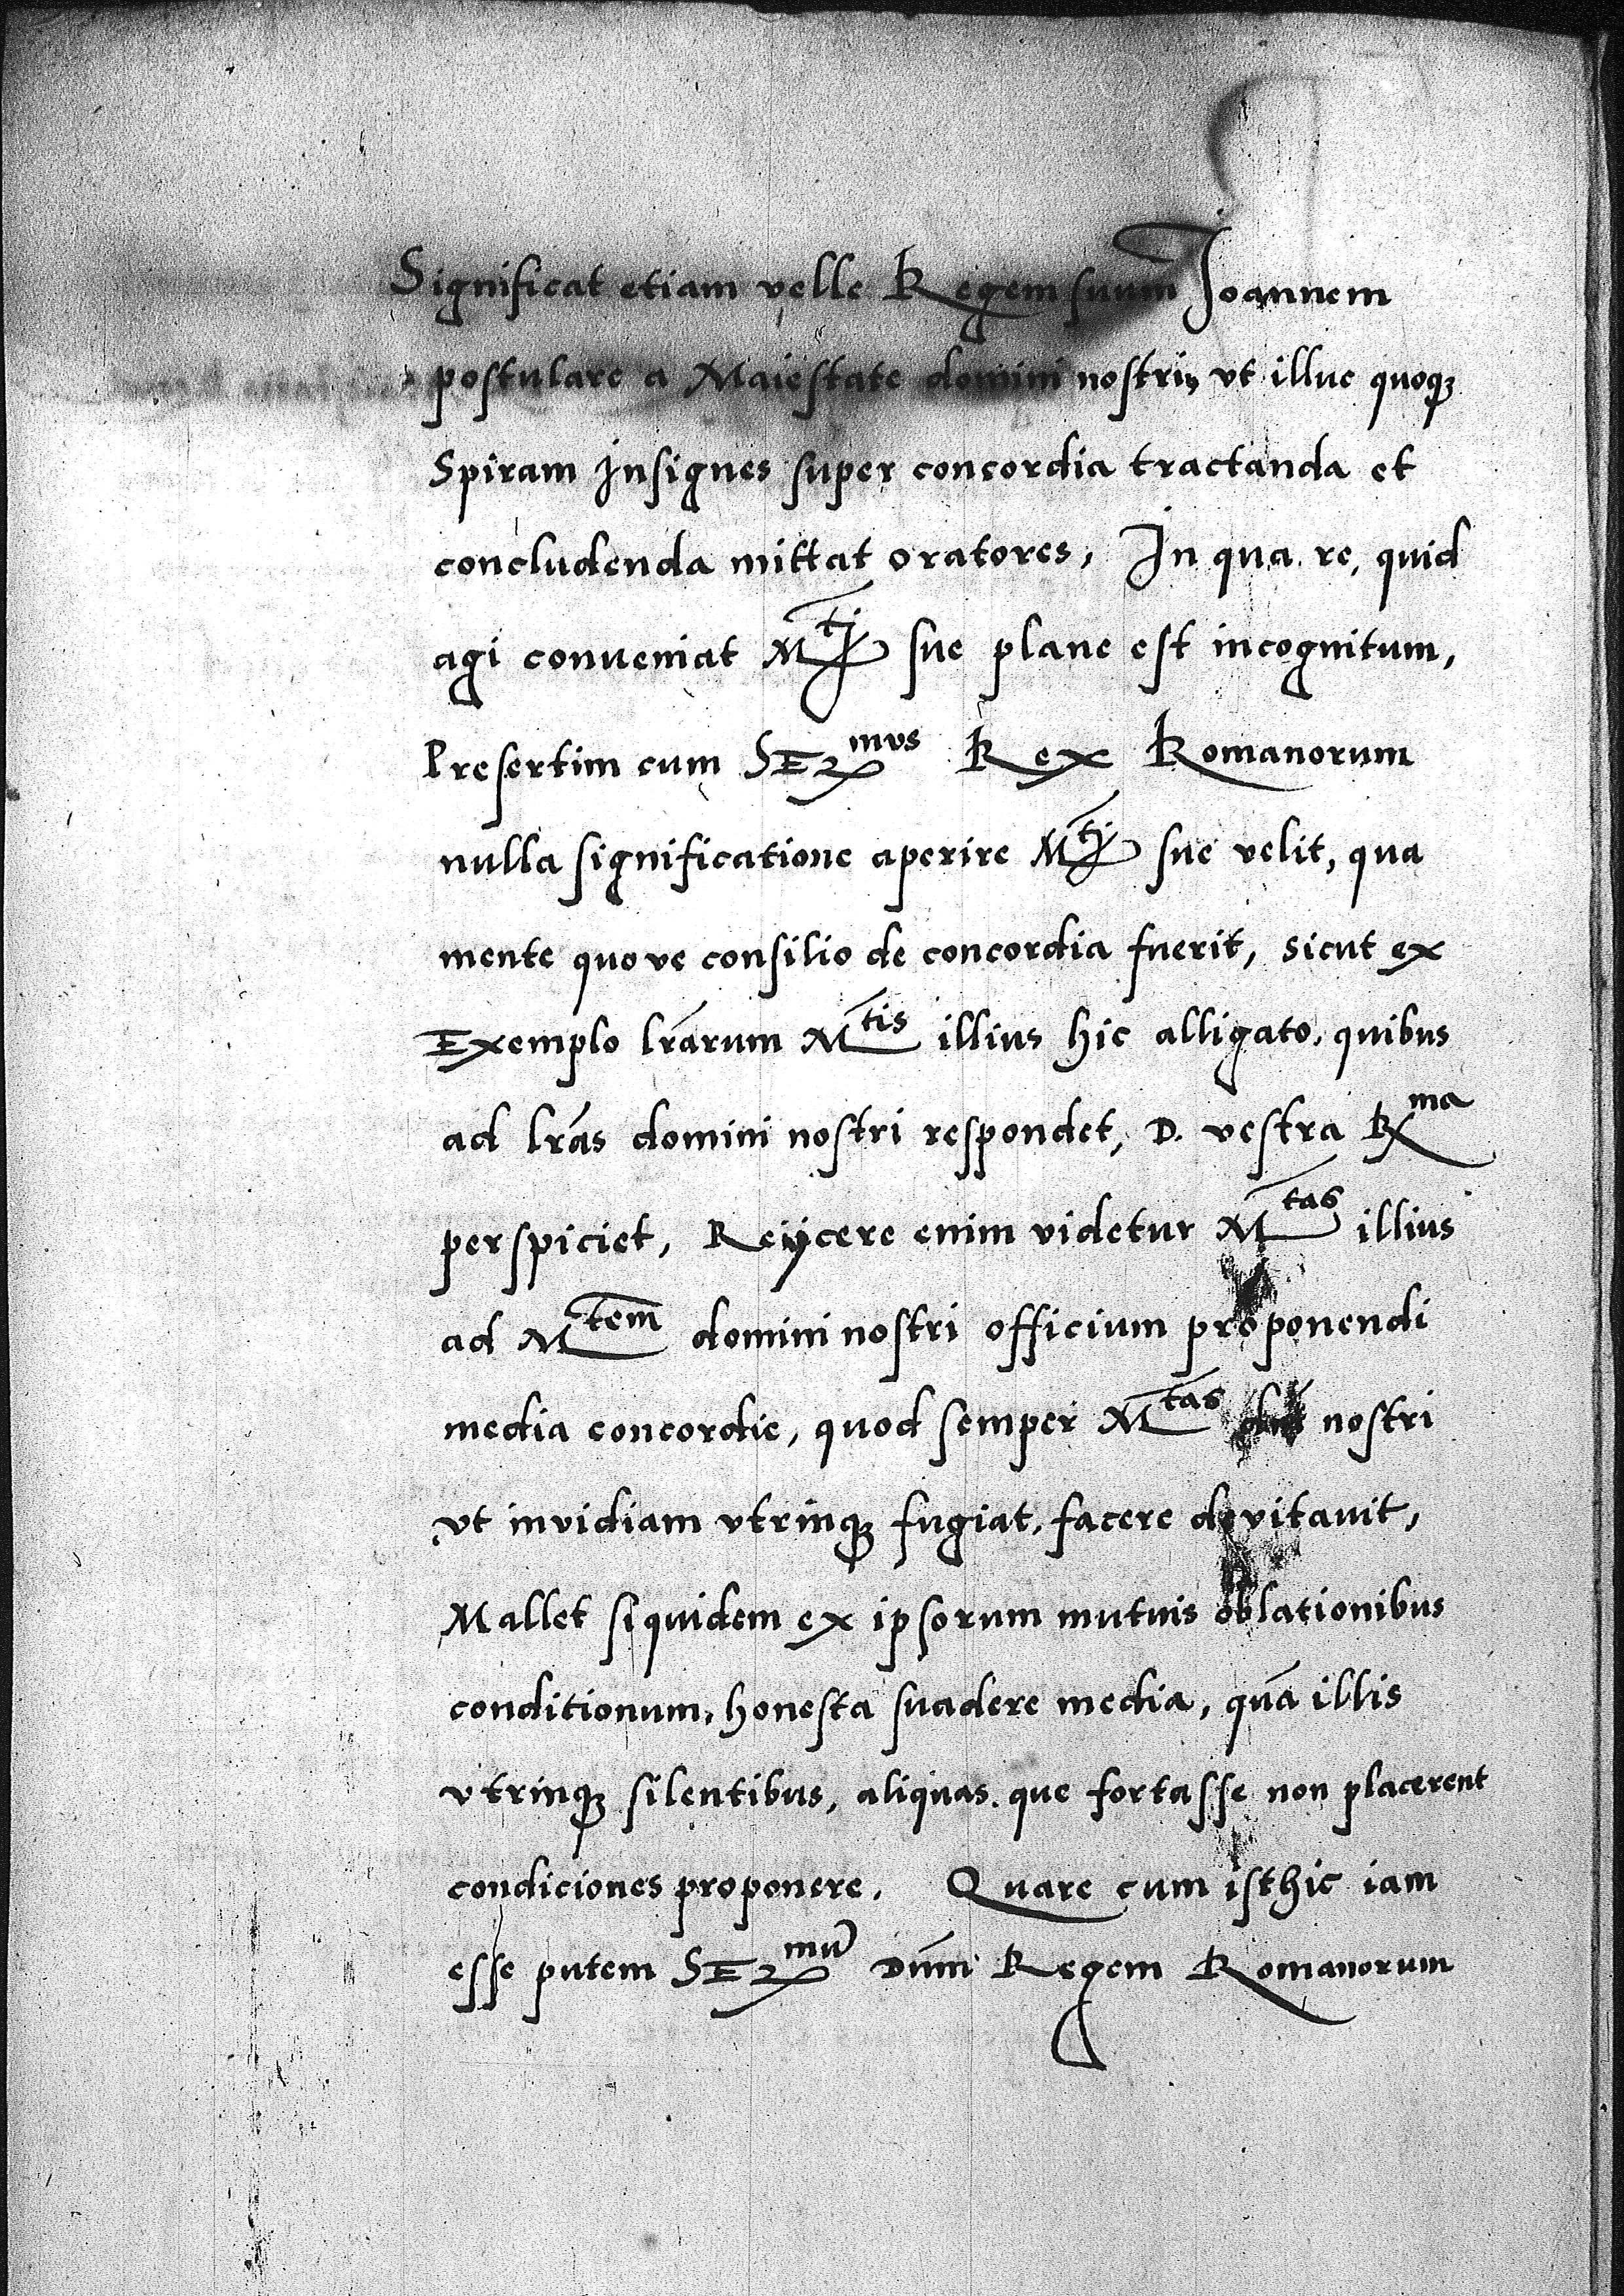 Significat etiam velle Regem suum Joannem
postulare a Maiestate domini nostri, vt illuc quoq₃
Spiram Insignes super concordia tractanda et
concludenda mittat oratores, In qua re, quid
agi conueniat M^tj sue plane est incognitum,
Presertim cum SER^mvs Rex Romanorum
nulla significatione aperire M^tj sue velit, qua
mente quove consilio de concordia fuerit, sicut ex
Exemplo lr̄arum M^tis illius hic alligato, quibus
ad lr̄as domini nostri respondet, D. vestra R^ma
perspiciet, Reijcere enim videtur M^tas illius
ad M^tem domini nostri officium proponendi
media concordie, quod semper M^tas nostri
vt invidiam vtrinq₃ fugiat, facere devitauit,
Mallet siquidem ex ipsorum mutuis oblationibus
conditionum, honesta suadere media, quā illis
vtrinq₃ silentibus, aliquas que fortasse non placerent
condiciones proponere. Quare cum isthic iam
esse putem SER^mū Dūm Regem Romanorum